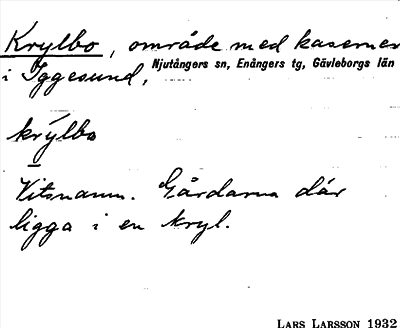 Krylbo, område med kaserner
i Iggesund, Njutångers sn, Enångers tg, Gävleborgs län
krýlbo
Vitsnamn. Gårdarna där
ligga i en kryl.
LARS LARSSON 1932